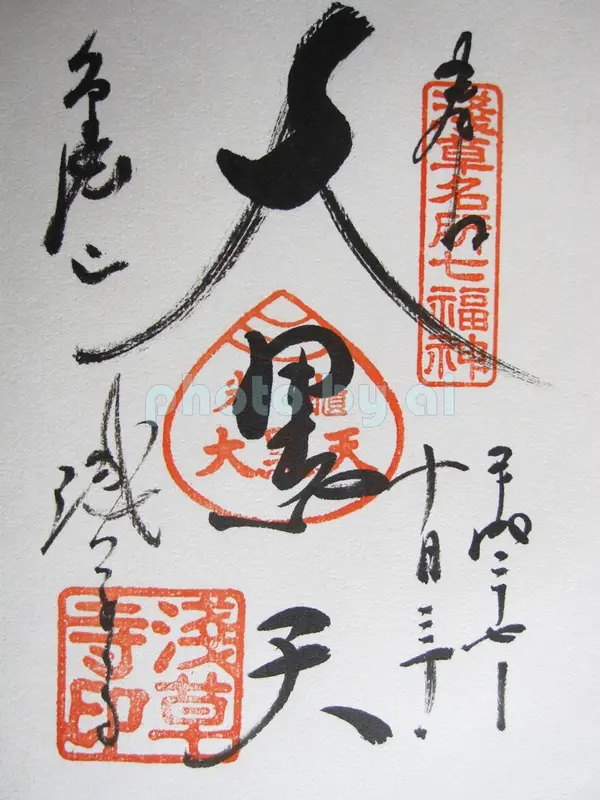 奉拝
淺草名所七福神
平成二十七年
十月三十日
大黒天
大黒天
金龍山
浅草寺
淺草寺印
photo by ai